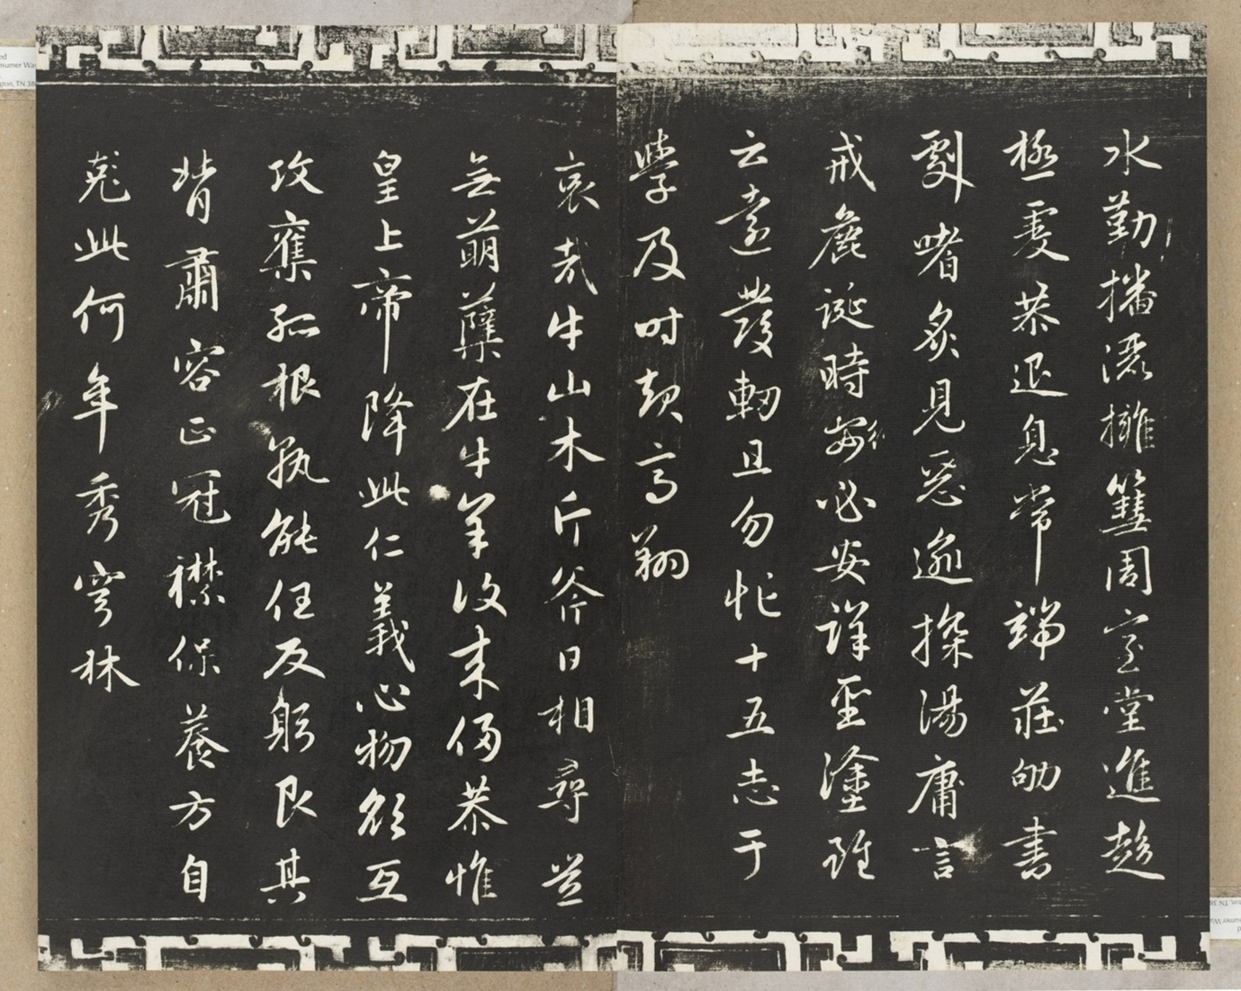 水勤播洒擁篲周室堂進趍
極虔恭退息常端莊劬書
劇嗜炙見惡逾探湯庸言
戒麁誕時行必安詳聖塗雖
云遠發軔且勿忙十五志于
學及时起高翔
哀哉牛山木斤斧日相尋豈
無萌蘗在牛羊復来侵恭惟
皇上帝降此仁義心物欲互
攻奪孤根孰能任反躬艮其
背肅容正冠襟保養方自
此何年秀穹林